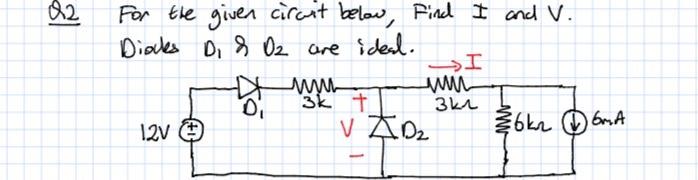 Q2 For the given circuit below, Find I and V.
Diodes D1 & D2 are ideal.
→ I
D1 3k + 3kΩ
12V ± V D2 6kΩ 6mA
-